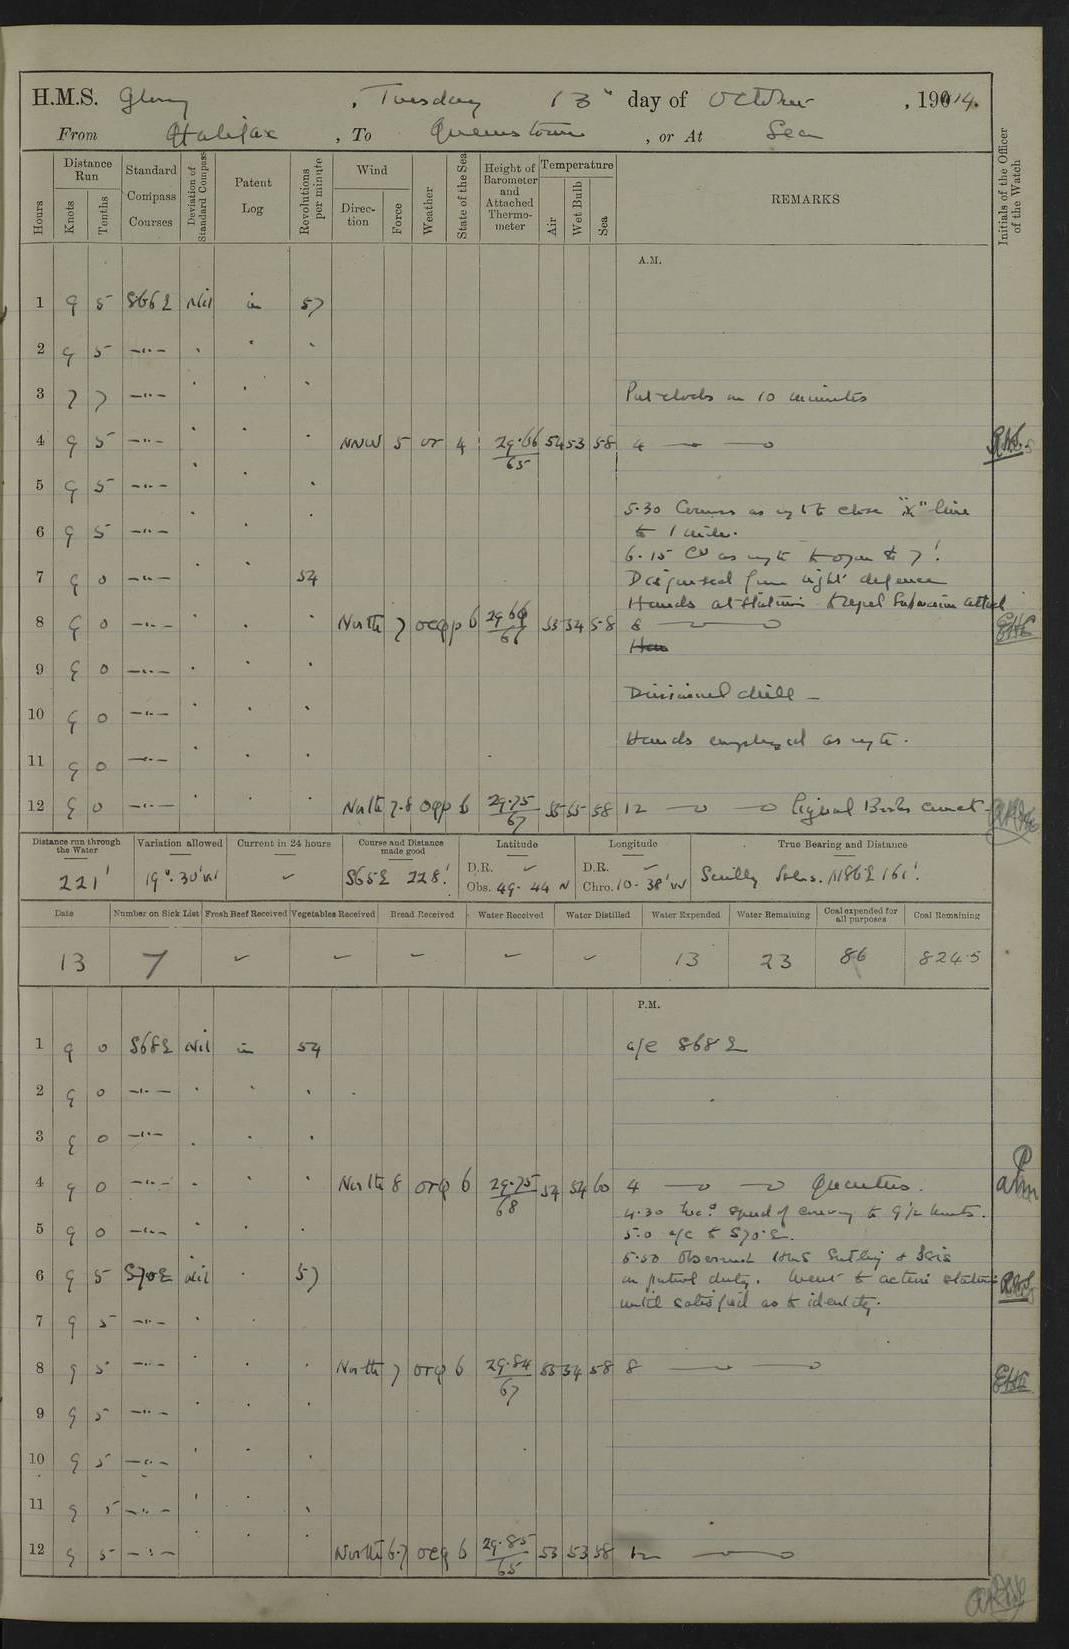 H.M.S. Glory, Tuesday 13th day of October, 1914.
From Halifax, To Queenstown, or At Sea
Hours
Distance Run
Knots
Tenths
Standard Compass Courses
Deviation of Standard Compass
Patent Log
Revolutions per minute
Wind
Direction
Force
Weather
State of the Sea
Height of Barometer and Attached Thermometer
Temperature
Air
Wet Bulb
Sea
REMARKS
Initials of the Officer of the Watch
A.M.
1 9 5 S66E Nil in 57
2 9 5 —"—
3 7 7 —"— Put clocks on 10 minutes
4 9 5 —"— NNW 5 or 4 29.66/65 54 53 58 4
5 9 5 —"—
5.30 Course as req to close "X" line
6 9 5 —"— to 1 mile.
6.15 Co as req to open to 7'.
7 9 0 —"— 54 Dispersed from night defence
Hands at stations to repel Submarine attack
8 9 0 —"— North 7 ocqp 6 55 54 58 8
9 9 0 —"—
Divisional drill —
10 9 0 —"—
Hands employed as req te.
11 9 0 —"—
12 9 0 —"— North 7.8 oqp 6 29.75/67 55 55 58 12 Signal Books correct
Distance run through the Water 221'
Variation allowed 19°.30'W
Current in 24 hours
Course and Distance made good S65E 228'
Latitude D.R. Obs. 49-44 N
Longitude D.R. Chro. 10-38'W
True Bearing and Distance Scilly Isles. N86E 161'.
Date
Number on Sick List
Fresh Beef Received
Vegetables Received
Bread Received
Water Received
Water Distilled
Water Expended
Water Remaining
Coal expended for all purposes
Coal Remaining
13 7 13 23 86 824.5
P.M.
1 9 0 S68E Nil in 54 a/c S68E
2 9 0 —"—
3 9 0 —"—
4 9 0 —"— North 8 orq 6 29.75/68 54 54 60 4 Quarters.
4.30 Inc. speed of convoy to 9½ knots.
5 9 0 —"— 5.0 a/c to S70.E.
5.50 Observed HMS Sutlej & Isis
6 9 5 S70E Nil 57 on patrol duty. Went to action stations
until satisfied as to identity.
7 9 5 —"—
8 9 5 —"— North 7 orq 6 29.84/67 55 54 58 8
9 9 5 —"—
10 9 5 —"—
11 9 5 —"—
12 9 5 —"— North 6.7 ocq 6 29.85/65 53 53 58 12